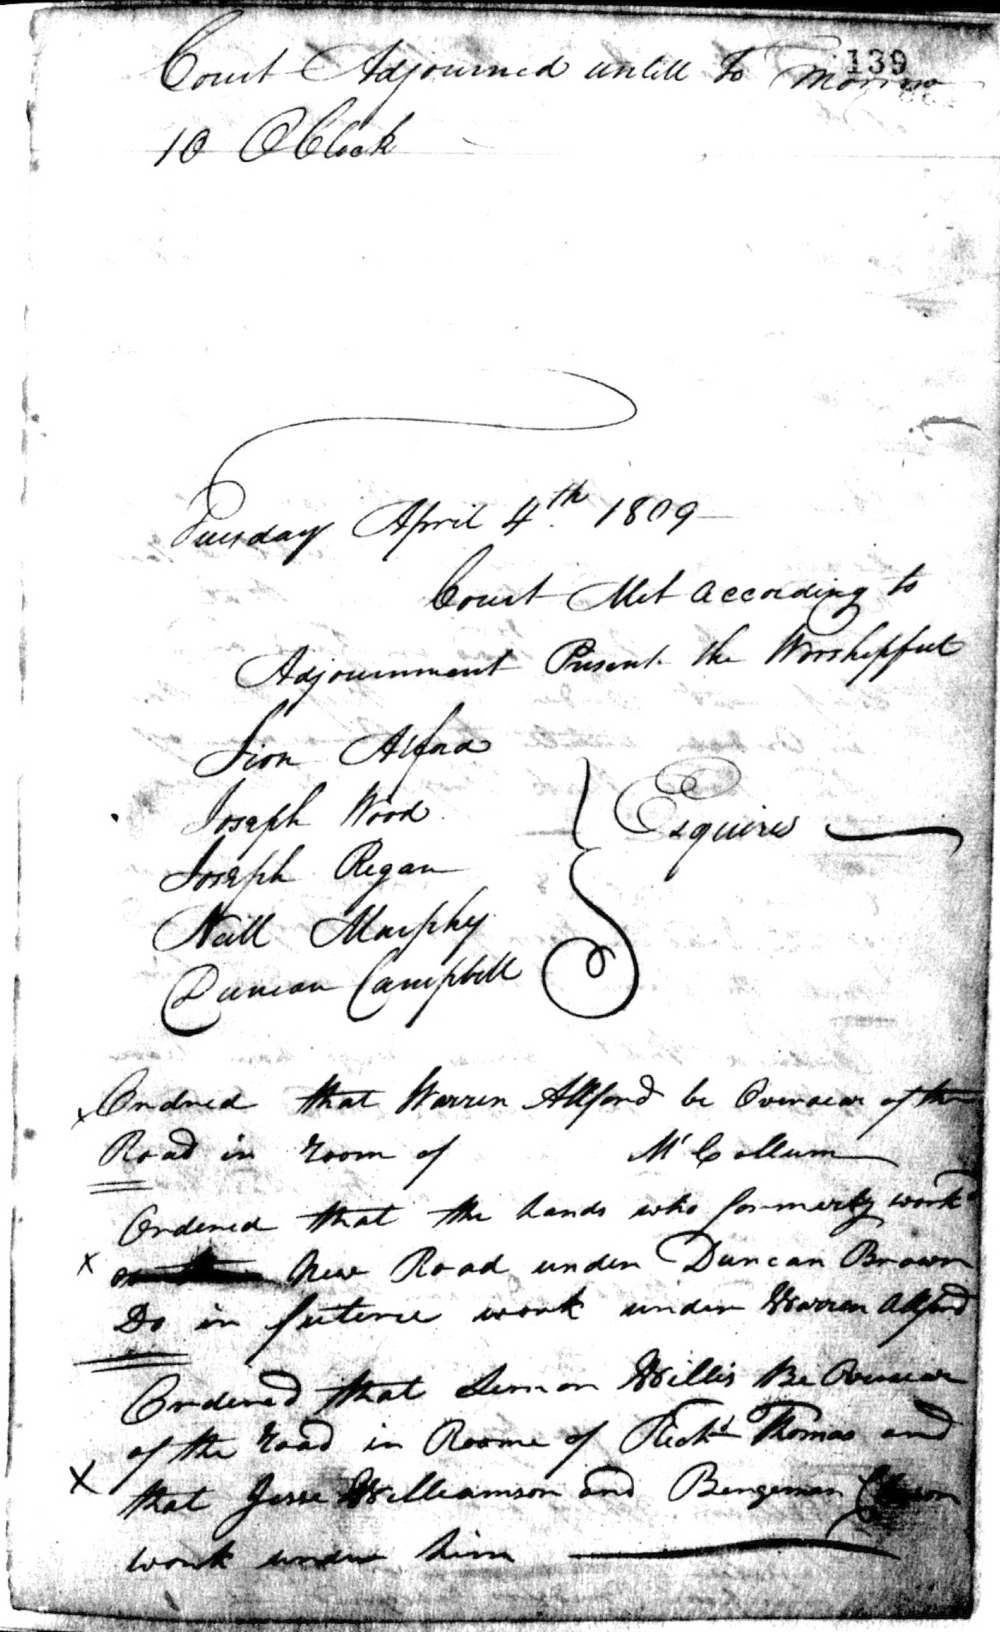 139
Court Adjourned untill To Morrow
10 OClock
Tuesday April 4th 1809
Court Met according to
Adjournment Present the Worshipfull
Sion Alford
Joseph Wood
Esquires
Joseph Regan
Neill Murphy
Duncan Campbell
x Ordered that Warren Allford be Overseer of the
Road in room of McCollum
Ordered that the hands who formerly workd
x New Road under Duncan Brown
Do in futerue work under Warren Alford
Ordered that Semon Willis Be Overseer
of the road in Roome of Richd Thomas and
x that Jesse Williamson and Bengeman
work under him